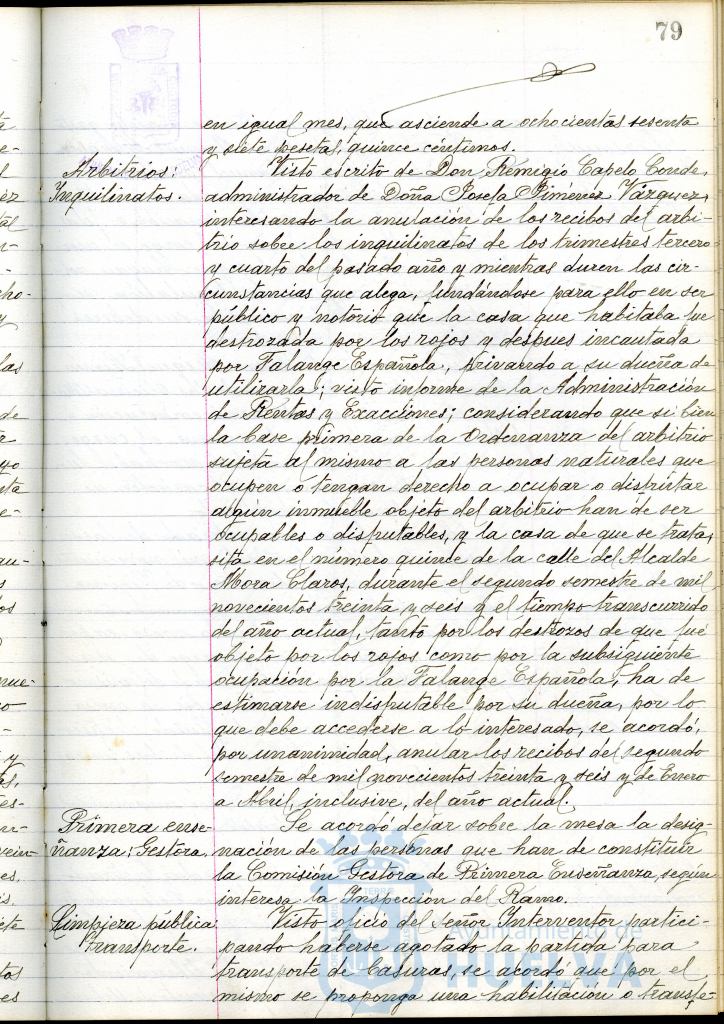 79
en igual mes, que asciende a ochocientas sesenta
y siete pesetas, quince céntimos.
Arbitrios:
Inquilinatos.
Visto escrito de Don Remigio Capelo Conde,
administrador de Doña Josefa Jiménez Vázquez,
interesando la anulación de los recibos del arbi-
trio sobre los inquilinatos de los trimestres tercero
y cuarto del pasado año y mientras duren las cir-
cunstancias que alega, fundándose para ello en ser
público y notorio que la casa que habitaba fue
destrozada por los rojos y despues incautada
por Falange Española, privando a su dueña de
utilizarla; visto informe de la Administración
de Rentas y Exacciones; considerando que si bien
la base primera de la Ordenanza del arbitrio
sujeta al mismo a las personas naturales que
ocupen o tengan derecho a ocupar o disfrutar
algún inmueble objeto del arbitrio han de ser
ocupables o disputables, y la casa de que se trata,
sita en el número quince de la calle del Alcalde
Mora Claros, durante el segundo semestre de mil
novecientos treinta y seis y el tiempo transcurrido
del año actual, tanto por los destrozos de que fué
objeto por los rojos como por la subsiguiente
ocupación por la Falange Española, ha de
estimarse indisputable por su dueña, por lo
que debe accederse a lo interesado, se acordó,
por unanimidad, anular los recibos del segundo
semestre de mil novecientos treinta y seis y de Enero
a Abril, inclusive, del año actual.
Primera ense-
ñanza: Gestora.
Se acordó dejar sobre la mesa la desig-
nación de las personas que han de constituir
la Comisión Gestora de Primera Enseñanza, según
interesa la Inspección del Ramo.
Limpieza pública:
transporte.
Visto oficio del señor Interventor partici-
pando haberse agotado la partida para
transporte de basuras, se acordó que por el
mismo se proponga una habilitación o transfe-
Ayuntamiento de
HUELVA